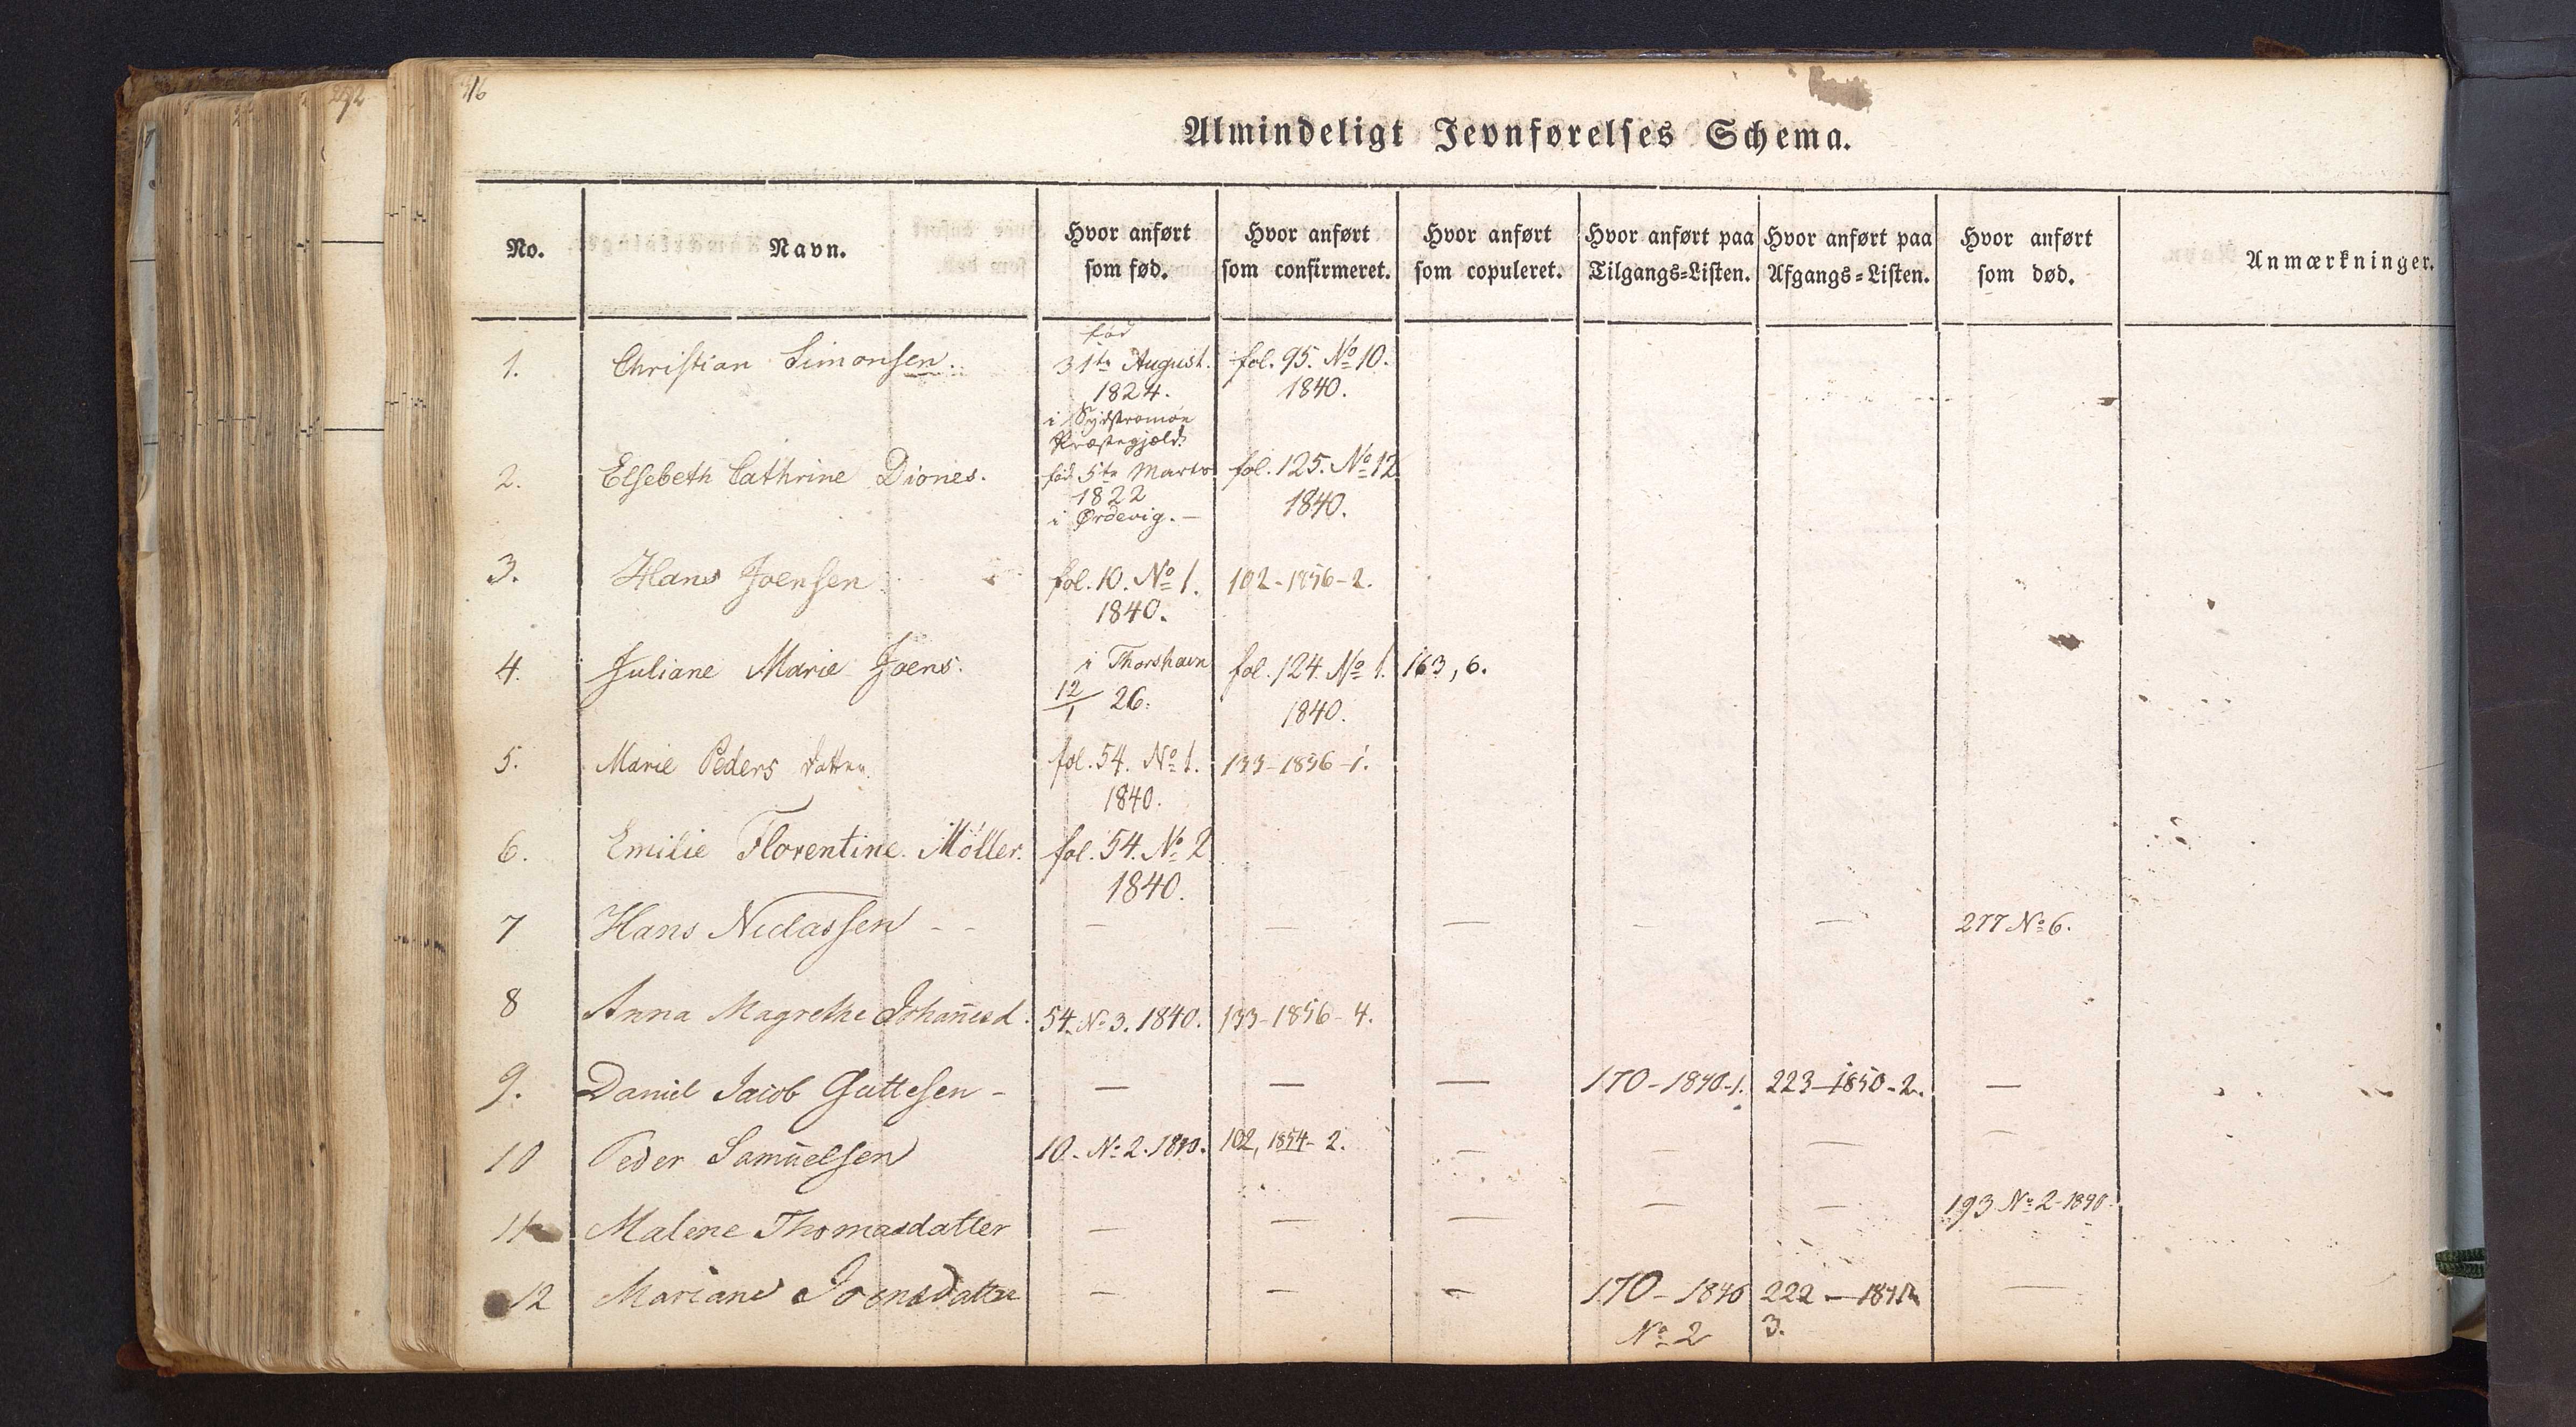 292
416
Almindeligt Jevnførelses Schema.
No. Navn. Hvor anført som fød. Hvor anført som confirmeret. Hvor anført som copuleret. Hvor anført paa Tilgangs-Listen. Hvor anført paa Afgangs-Listen. Hvor anført som død. Anmærkninger.
fød
1. Christian Simonsen. 31te August. fol. 95. No 10.
1824. 1840.
i Sydstromøe
Præstegjæld.
2. Elsebeth Cathrine Diones. fød 5te Marts fol. 125. No 12
1822 1840.
i Ördevig. —
3. Hans Joensen fol. 10. No 1. 102-1856-2.
1840.
4. Juliane Marie Joens. i Thorshavn fol. 124. No 1. 163, 6.
12/1 26. 1840.
5. Marie Peders datter. fol. 54. No 1. 133-1856-1.
1840.
6. Emilie Florentine Möller. fol. 54. No 2
1840.
7 Hans Niclassen - - — — — — — 277 No 6.
8 Anna Magrethe Johanesd. 54. No 3. 1840. 133-1856-4.
9. Daniel Jacob Guttesen - — — — 170-1840-1. 223-1850-2. —
10 Peder Samuelsen 10. No 2. 1840. 102, 1854-2. — — — —
11 Malene Thomasdatter — — — — — 193 No 2-1840.
12 Mariane Joensdatter — — — 170-1840 222 — —
No 2 3.